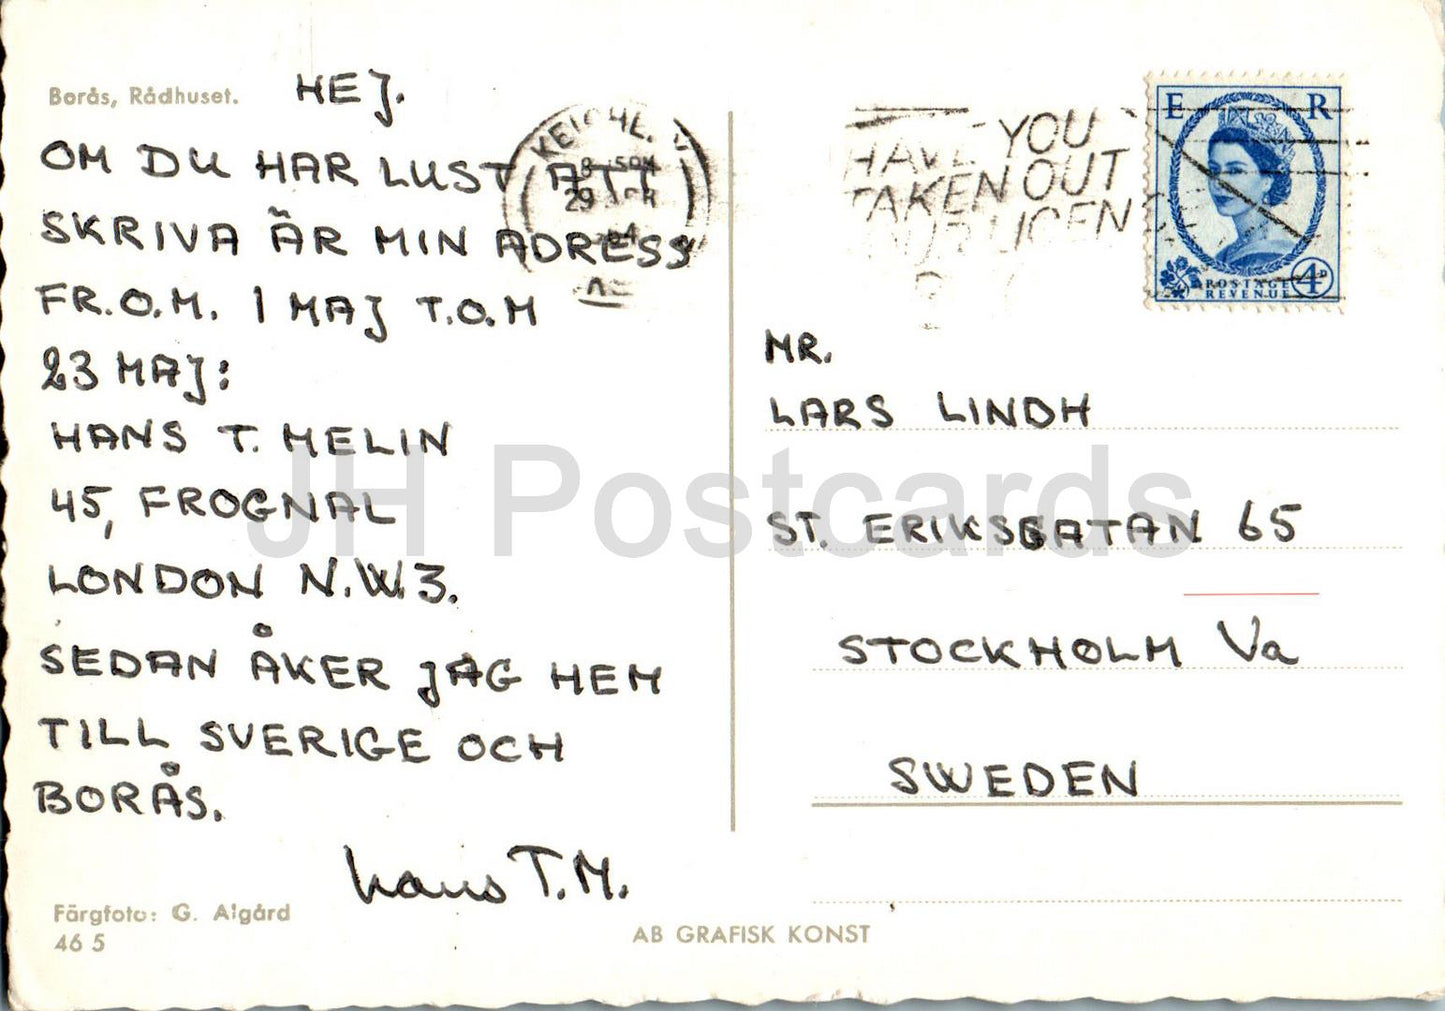 Borås, Rådhuset.
HEJ.
OM DU HAR LUST ATT
SKRIVA ÄR MIN ADRESS
FR.O.M. 1 MAJ T.O.M
23 MAJ:
HANS T. MELIN
45, FROGNAL
LONDON N.W.3.
SEDAN ÅKER JAG HEM
TILL SVERIGE OCH
BORÅS.
Hans T.M.
Färgfoto: G. Algård
46 5
AB GRAFISK KONST
29
YOU
HAVE
TAKEN OUT
E R
POSTAGE
REVENUE
4D
MR.
LARS LINDH
ST. ERIKSGATAN 65
STOCKHOLM Va
SWEDEN
JH Postcards